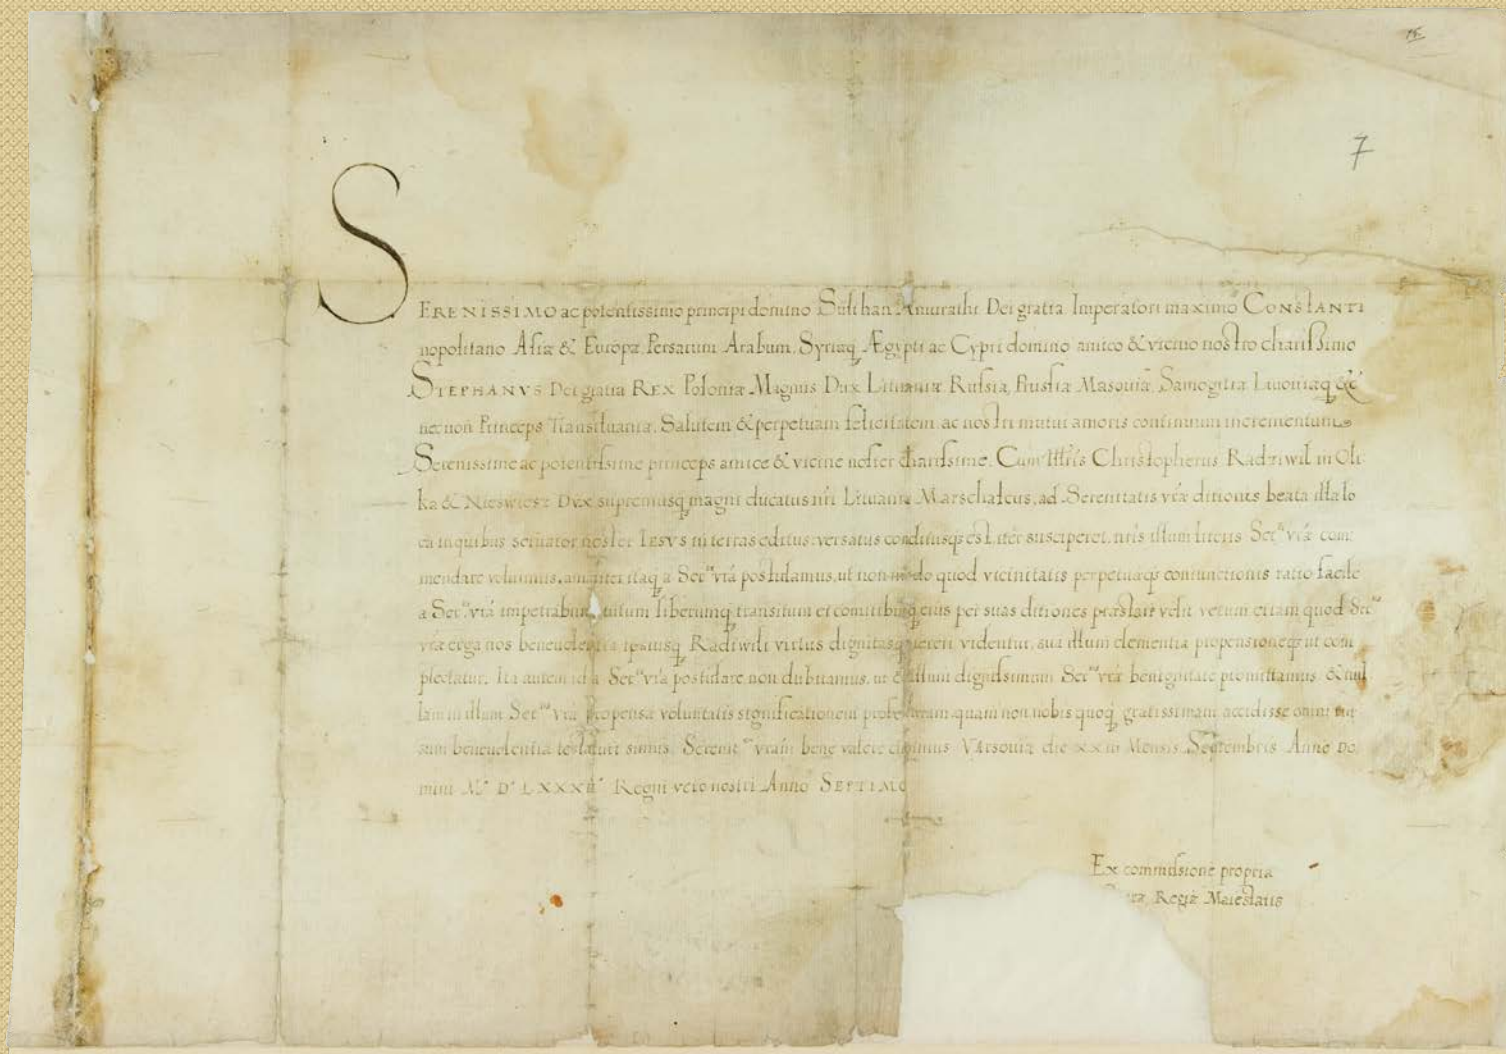 15.
7
SERENISSIMO ac potentissimo principi domino Sulthan Amurathi Dei gratia Imperatori maximo CONSTANTI
nopolitano Asiæ & Europæ, Persarum Arabum, Syriæq Ægypti ac Cypri domino amico & vicino nostro charissimo
STEPHANVS Dei gratia REX Poloniæ Magnus Dux Lituaniæ Russiæ, Prussiæ Masouiæ, Samogitiæ Liuoniæq &c
nec non Princeps Transiluaniæ. Salutem & perpetuam felicitatem ac nostri mutui amoris continuum incrementum
Serenissime ac potentissime princeps amice & vicine noster charissime. Cum Illris Christopherus Radziwil in Oli
ka & Nieswiesz Dvx supremusq magni ducatus nri Lituaniæ Marschalcus, ad Serenitatis vræ ditionis beata illa lo
ca in quibus seruator noster IESVS in terras editus versatus conditusq est iter susciperet, nris illum literis Sertti vræ com
mendare voluimus, amanter itaq a Sertte vra postulamus, ut non modo quod vicinitatis perpetuæq coniunctionis ratio facile
a Sertte vra impetrabunt, tutum liberumq transitum et comitibusq eius per suas ditiones præstari velit verum etiam quod Sertis
vræ erga nos beneuolentia ipsiusq Radiwili virtus dignitasq mereri videntur, sua illum clementia propensioneq ut com
plectatur. Ita autem id a Sertte vra postulare non dubitamus, ut & illum dignissimum Sertis vræ benignitate promittamus & nul
lam in illum Sertis vræ propensæ voluntatis significationem profecturam, quam non nobis quoq gratissimam accidisse omni rur
sum beneuolentia testaturi simus. Serenittem vram bene valere cupimus Varsouiæ die xxiii Mensis Septembris Anno Do
mini Mo Do LXXXIIo Regni vero nostri Anno SEPTIMO
Ex commissione propria
Regiæ Maiestatis